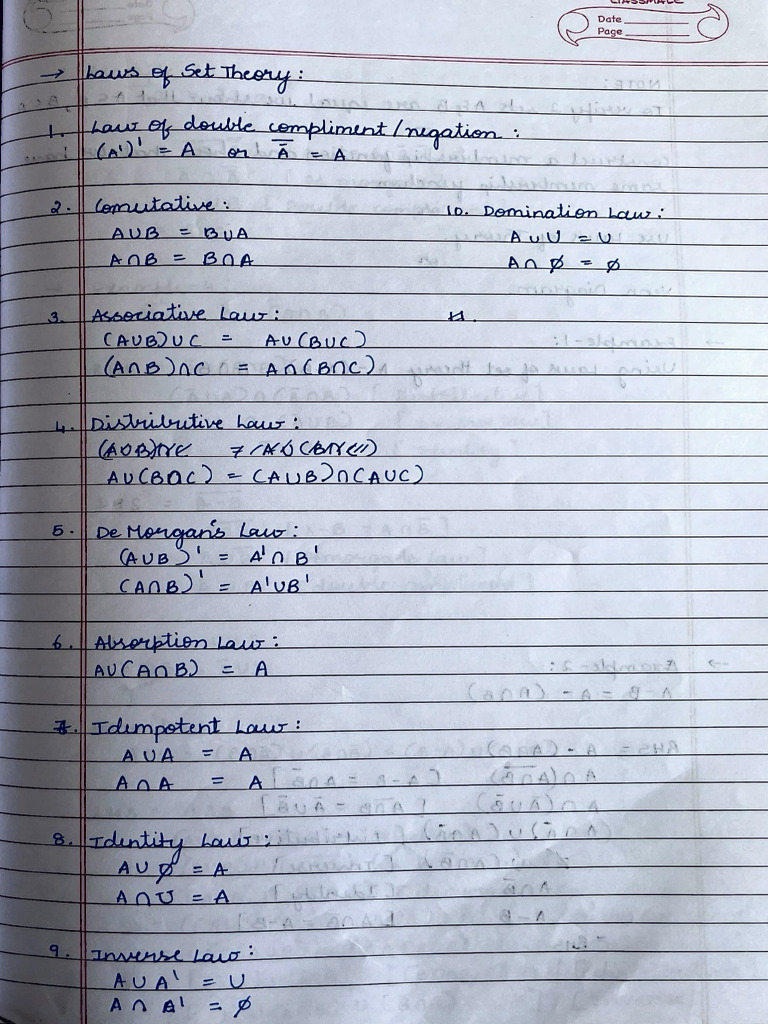 CLASSMATE
Date
Page
→ Laws of Set Theory :
1. Law of double compliment/negation :
(A')' = A or A̿ = A
2. Comutative :
A∪B = B∪A
A∩B = B∩A
10. Domination Law :
A∪U = U
A∩ ∅ = ∅
3. Associative Law :
(A∪B)∪C = A∪(B∪C)
(A∩B)∩C = A∩(B∩C)
4. Distributive Law :
A∪(B∩C) = (A∪B)∩(A∪C)
5. De Morgan's Law :
(A∪B)' = A'∩B'
(A∩B)' = A'∪B'
6. Absorption Law :
A∪(A∩B) = A
7. Idempotent Law :
A∪A = A
A∩A = A
8. Identity Law :
A∪∅ = A
A∩U = A
9. Inverse Law :
A∪A' = U
A∩A' = ∅